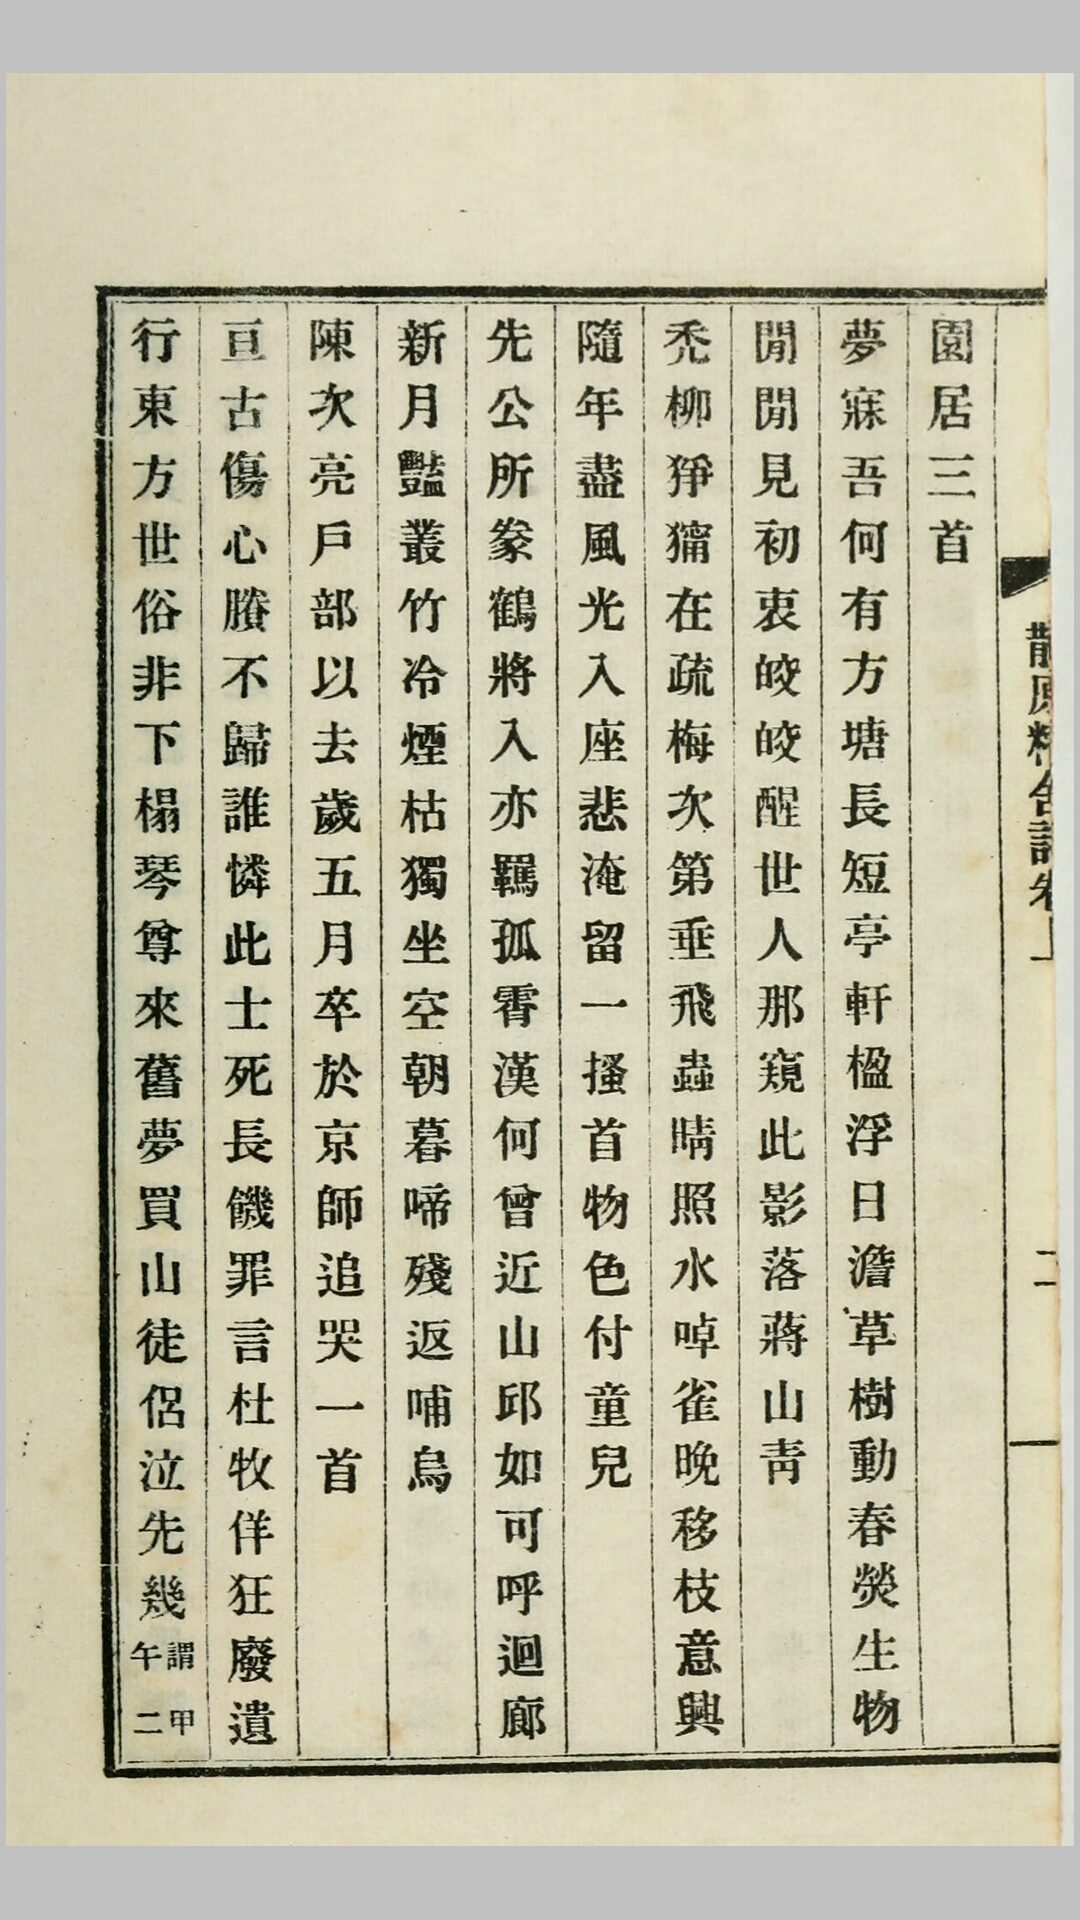 散原精舍詩卷上
二
園居三首
夢寐吾何有方塘長短亭軒楹浮日澹草樹動春熒生物
閒閒見初衷皎皎醒世人那窺此影落蔣山靑
禿柳猙獰在疏梅次第垂飛蟲晴照水啅雀晚移枝意興
隨年盡風光入座悲淹留一搔首物色付童兒
先公所豢鶴將入亦羈孤霄漢何曾近山邱如可呼迴廊
新月豔叢竹冷煙枯獨坐空朝暮啼殘返哺烏
陳次亮戶部以去歲五月卒於京師追哭一首
亘古傷心賸不歸誰憐此士死長饑罪言杜牧佯狂廢遺
行東方世俗非下榻琴尊來舊夢買山徒侶泣先幾謂甲
午二